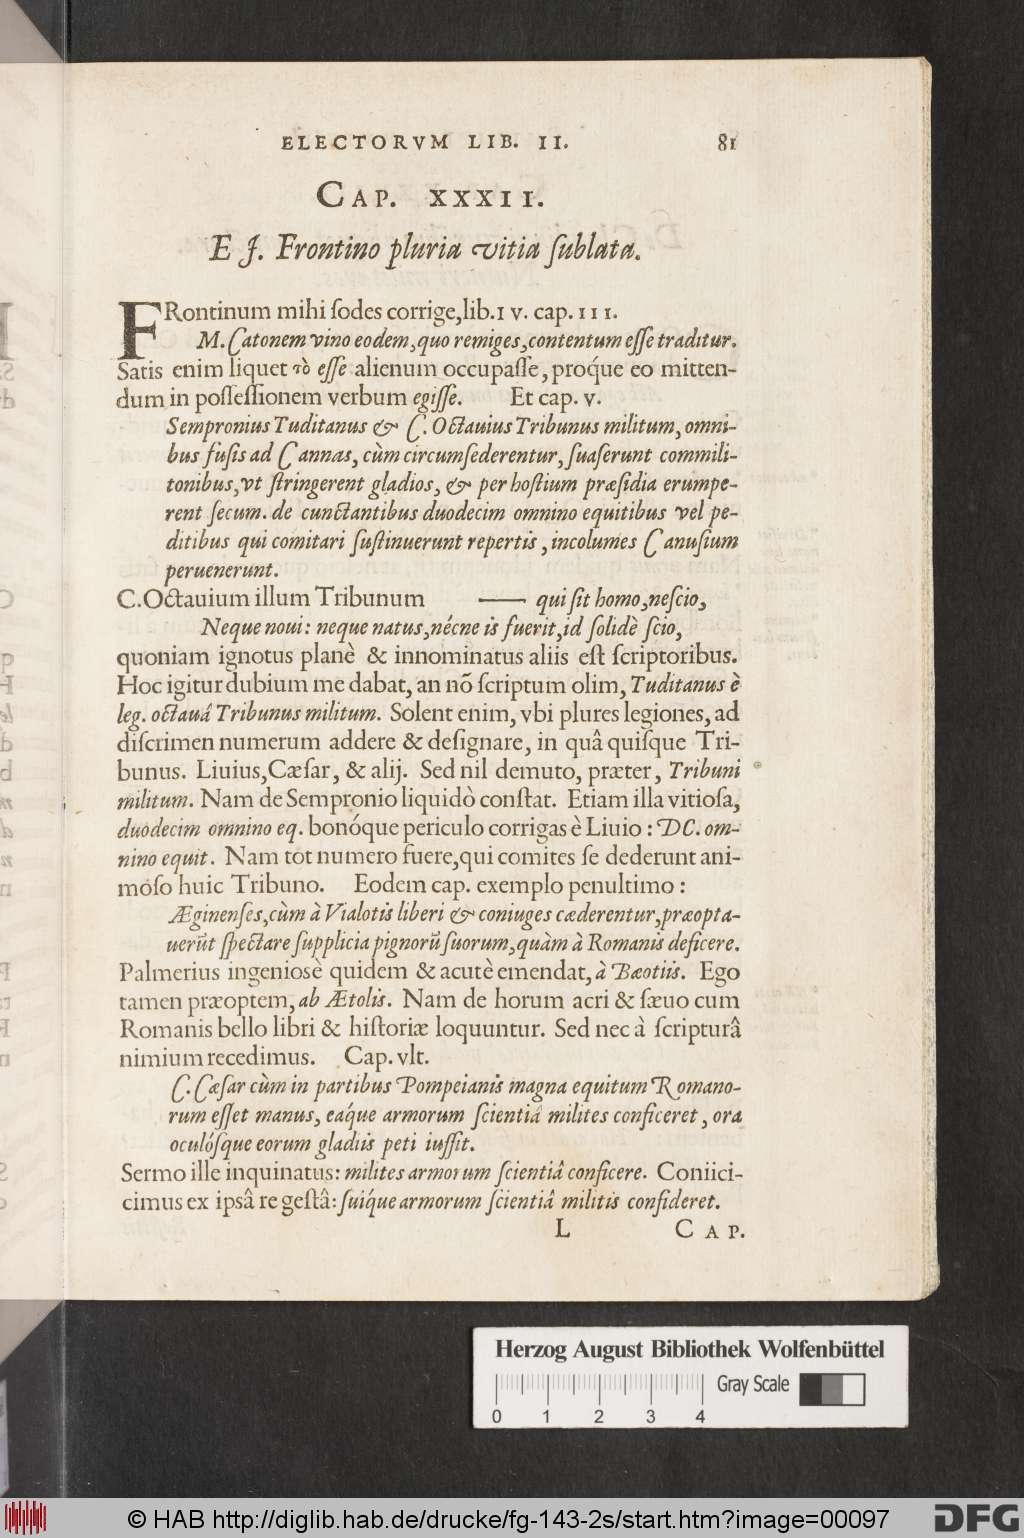 ELECTORVM LIB. II. 81
CAP. XXXII.
E J. Frontino pluria vitia ſublata.
FRontinum mihi ſodes corrige, lib. IV. cap. III.
M. Catonem vino eodem, quo remiges, contentum eſſe traditur.
Satis enim liquet τὸ eſſe alienum occupaſſe, próque eo mitten-
dum in poſſeſſionem verbum egiſſe. Et cap. V.
Sempronius Tuditanus & C. Octauius Tribunus militum, omni-
bus fuſis ad Cannas, cùm circumſederentur, ſuaſerunt commili-
tonibus, vt ſtringerent gladios, & per hoſtium præſidia erumpe-
rent ſecum. de cunctantibus duodecim omnino equitibus vel pe-
ditibus qui comitari ſuſtinuerunt repertis, incolumes Canuſium
peruenerunt.
C. Octauium illum Tribunum —— qui ſit homo, neſcio,
Neque noui: neque natus, nécne is fuerit, id ſolidè ſcio,
quoniam ignotus planè & innominatus aliis eſt ſcriptoribus.
Hoc igitur dubium me dabat, an nō ſcriptum olim, Tuditanus è
leg. octauâ Tribunus militum. Solent enim, vbi plures legiones, ad
diſcrimen numerum addere & deſignare, in quâ quiſque Tri-
bunus. Liuius, Cæſar, & alij. Sed nil demuto, præter, Tribuni
militum. Nam de Sempronio liquidò conſtat. Etiam illa vitioſa,
duodecim omnino eq. bonóque periculo corrigas è Liuio: DC. om-
nino equit. Nam tot numero fuere, qui comites ſe dederunt ani-
moſo huic Tribuno. Eodem cap. exemplo penultimo:
Æginenſes, cùm à Vialotis liberi & coniuges cæderentur, præopta-
uerūt ſpectare ſupplicia pignorū ſuorum, quàm à Romanis deficere.
Palmerius ingenioſè quidem & acutè emendat, à Bæotiis. Ego
tamen præoptem, ab Ætolis. Nam de horum acri & ſæuo cum
Romanis bello libri & hiſtoriæ loquuntur. Sed nec à ſcripturâ
nimium recedimus. Cap. vlt.
C. Cæſar cùm in partibus Pompeianis magna equitum Romano-
rum eſſet manus, eáque armorum ſcientiâ milites conficeret, ora
oculóſque eorum gladiis peti iuſſit.
Sermo ille inquinatus: milites armorum ſcientiâ conficere. Coniici-
cimus ex ipſâ re geſtâ: ſuíque armorum ſcientiâ militis confideret.
L CAP.
Herzog August Bibliothek Wolfenbüttel
Gray Scale
0 1 2 3 4
© HAB http://diglib.hab.de/drucke/fg-143-2s/start.htm?image=00097
DFG